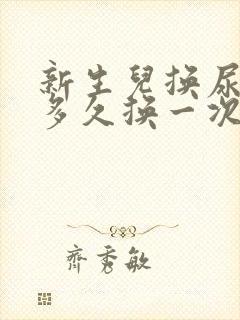 新生兒換尿
多久換一次
齊秀敏